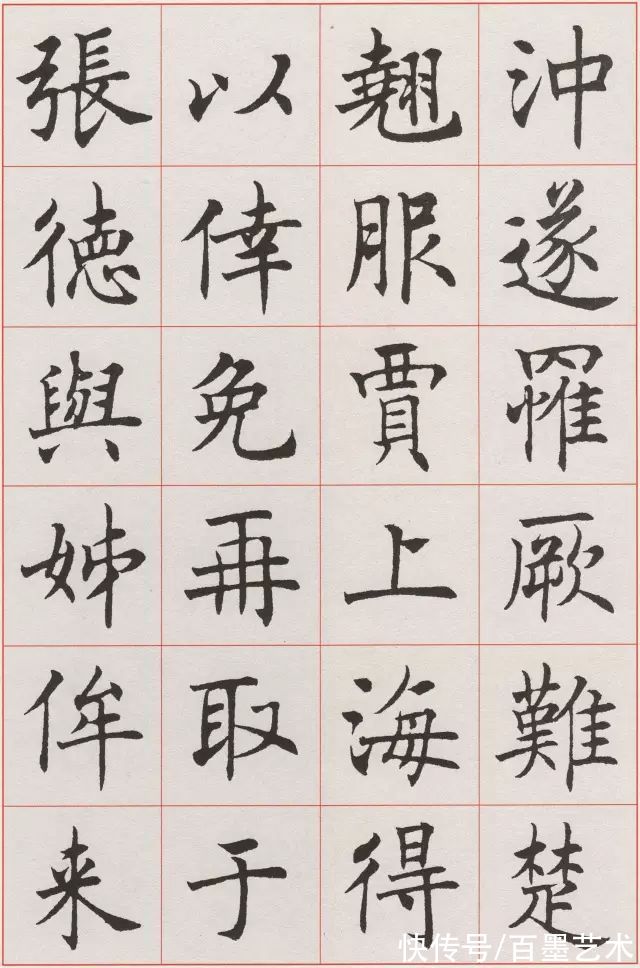 沖遂罹厥難楚
翹服賈上海得
以倖免再取于
張德與姊侔来
快传号/百墨艺术